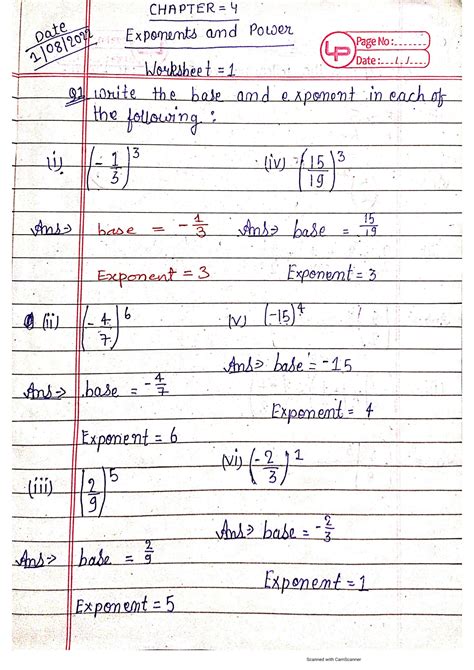 CHAPTER = 4
Date
1/08/2022
Exponents and Power
Page No:......
Date:.../.../...
Worksheet = 1
Q1 write the base and exponent in each of
the following :
(i) (-1/3)^3
(iv) (15/19)^3
Ans⇒ base = -1/3
Ans⇒ base = 15/19
Exponent = 3
Exponent = 3
(ii) (-4/7)^6
(v) (-15)^4
Ans⇒ base = -15
Ans⇒ base = -4/7
Exponent = 4
Exponent = 6
(vi) (-2/3)^1
(iii) (2/9)^5
Ans⇒ base = -2/3
Ans⇒ base = 2/9
Exponent = 1
Exponent = 5
Scanned with CamScanner